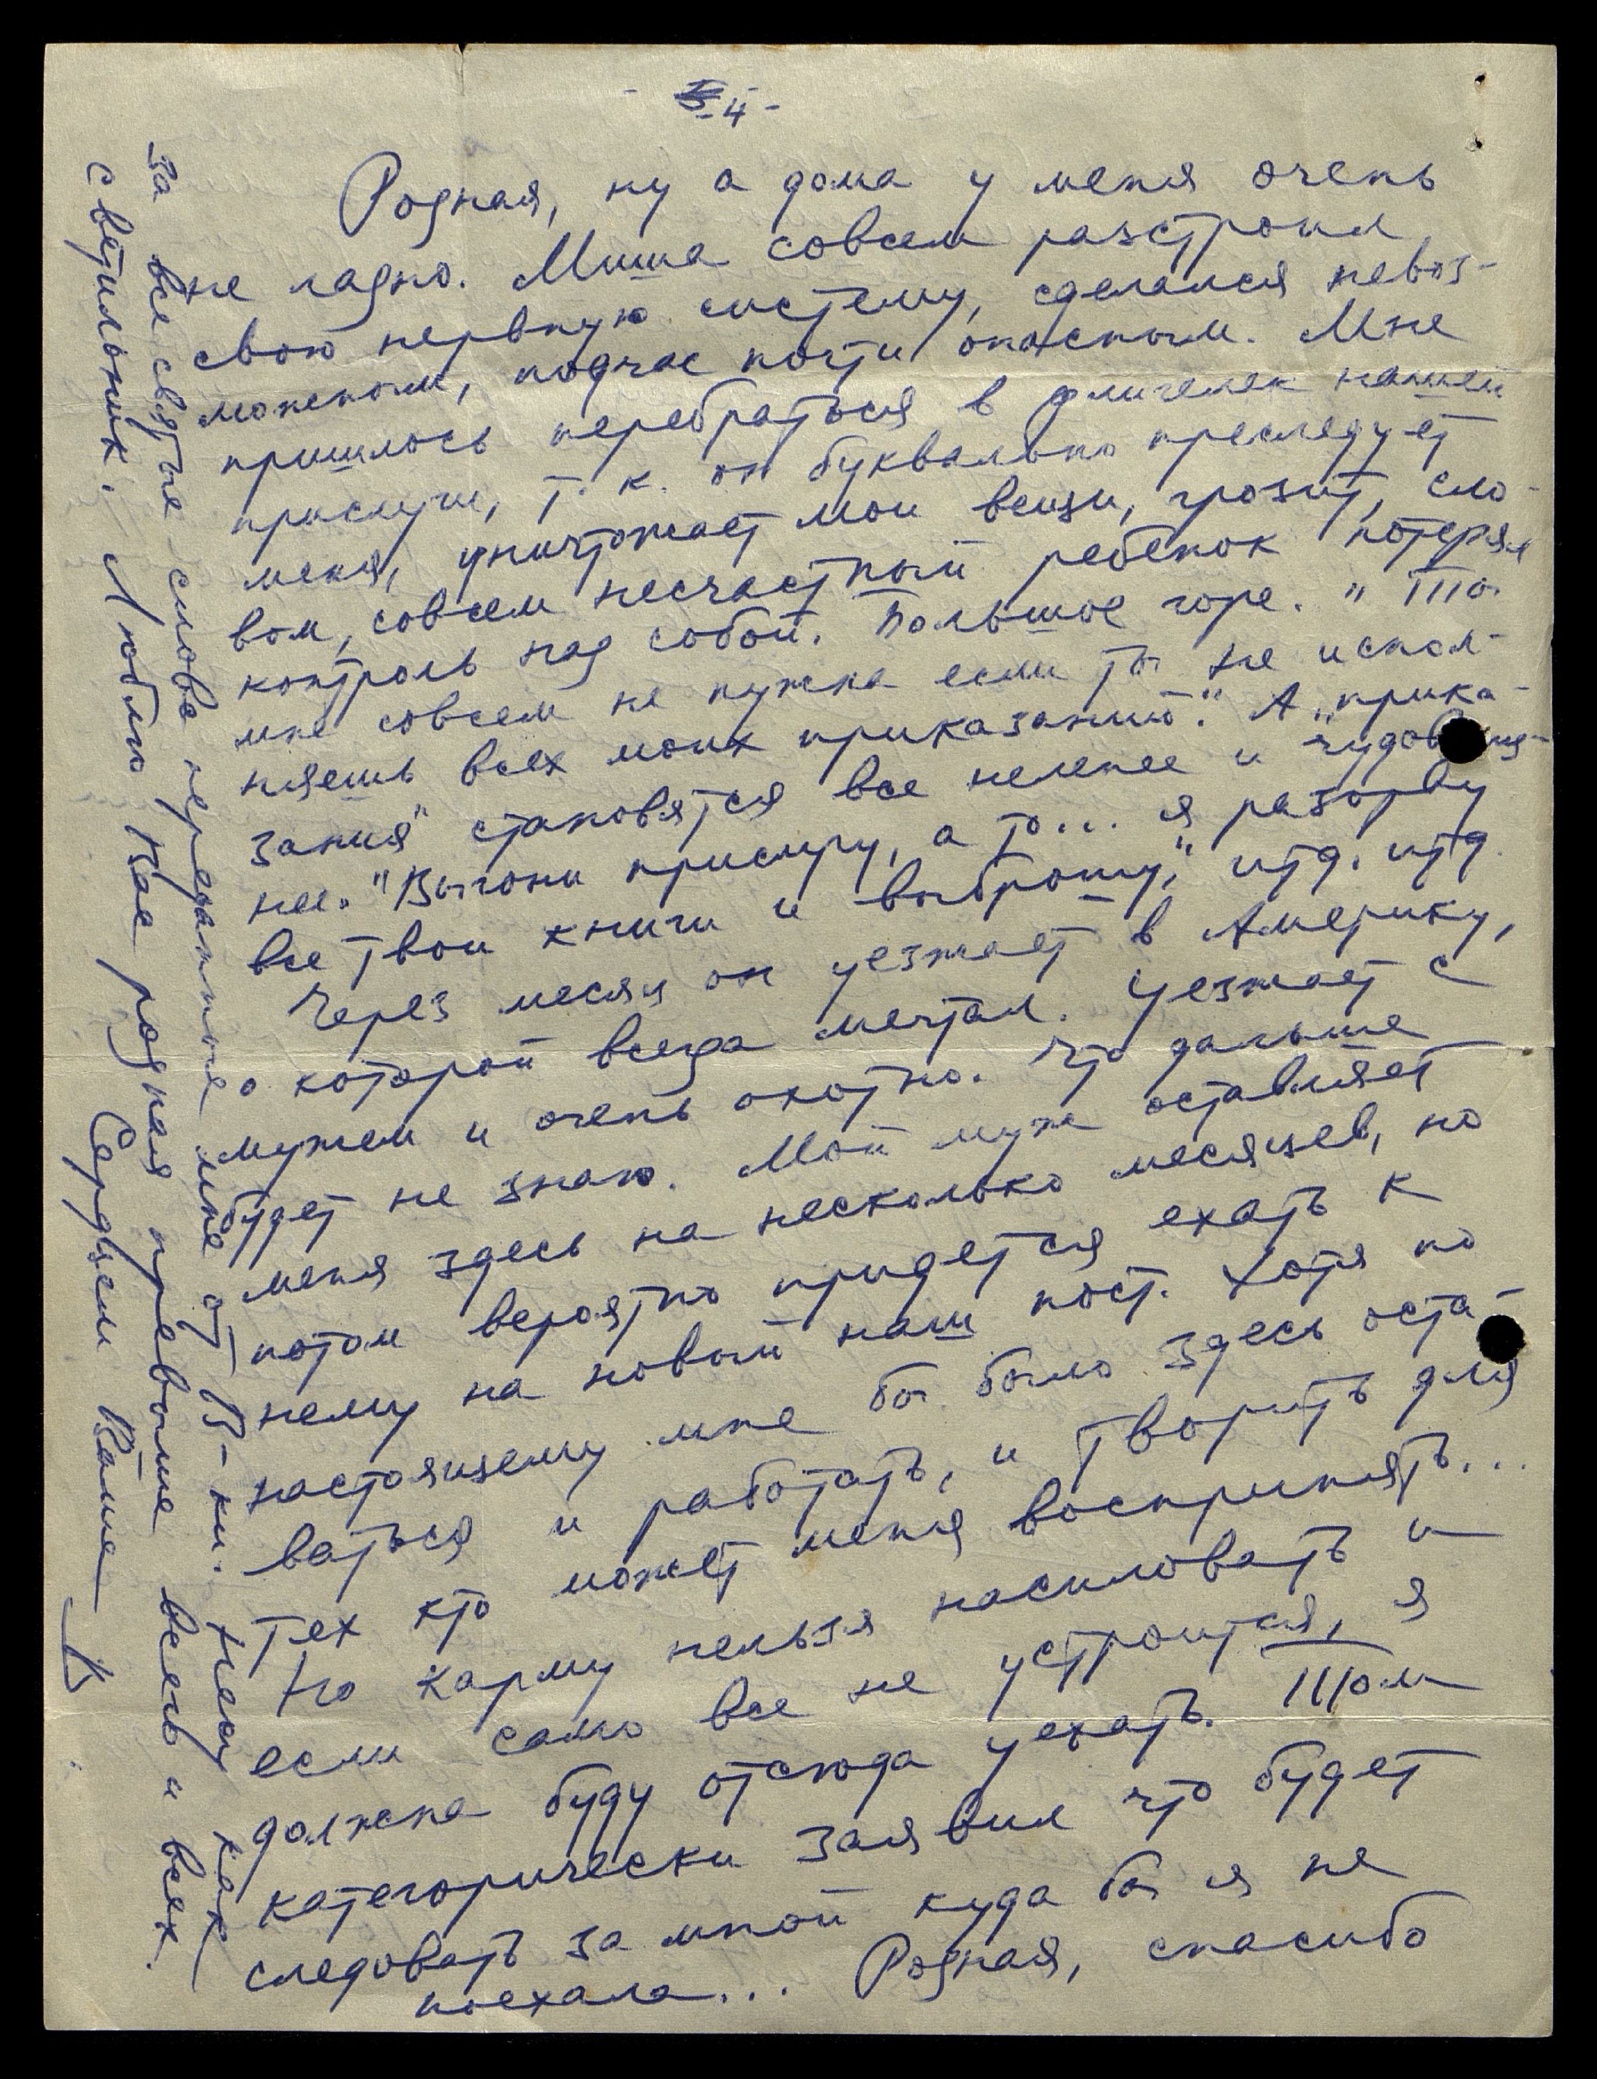 - 4 -
Родная, ну а дома у меня очень
не ладно. Миша совсем разстроил
свою нервную систему, сделался невоз-
можным, подчас почти опасным. Мне
пришлось перебраться в флигелек нашей
прислуги, т. к. он буквально преследует
меня, уничтожает мои вещи, грозит, сло-
вом, совсем несчастный ребенок потерял
контроль над собой. Большое горе. "Ты
мне совсем не нужна если ты не испол-
няешь всех моих приказаний." А "прика-
зания" становятся все нелепее и чудовищ-
нее. "Выгони прислугу, а то... я разорву
все твои книги и выброшу," итд. итд.
Через месяц он уезжает в Америку,
о которой всегда мечтал. Уезжает с
мужем и очень охотно. Что дальше
будет не знаю. Мой муж оставляет
меня здесь на несколько месяцев, но
потом вероятно придется ехать к
нему на новый наш пост. Хотя по
настоящему мне бы было здесь оста-
ваться и работать, и творить для
тех кто может меня воспринять...
Но карму нельзя насиловать и
если само все не устроится, я
должна буду отсюда уехать. Шом
категорически заявил что будет
следовать за мной куда бы я не
поехала... Родная, спасибо
за все светлые слова переданные мне от В-ки. Несу как
светильник. Люблю Вас родная превыше всего и всех.
Сердцем Ваша